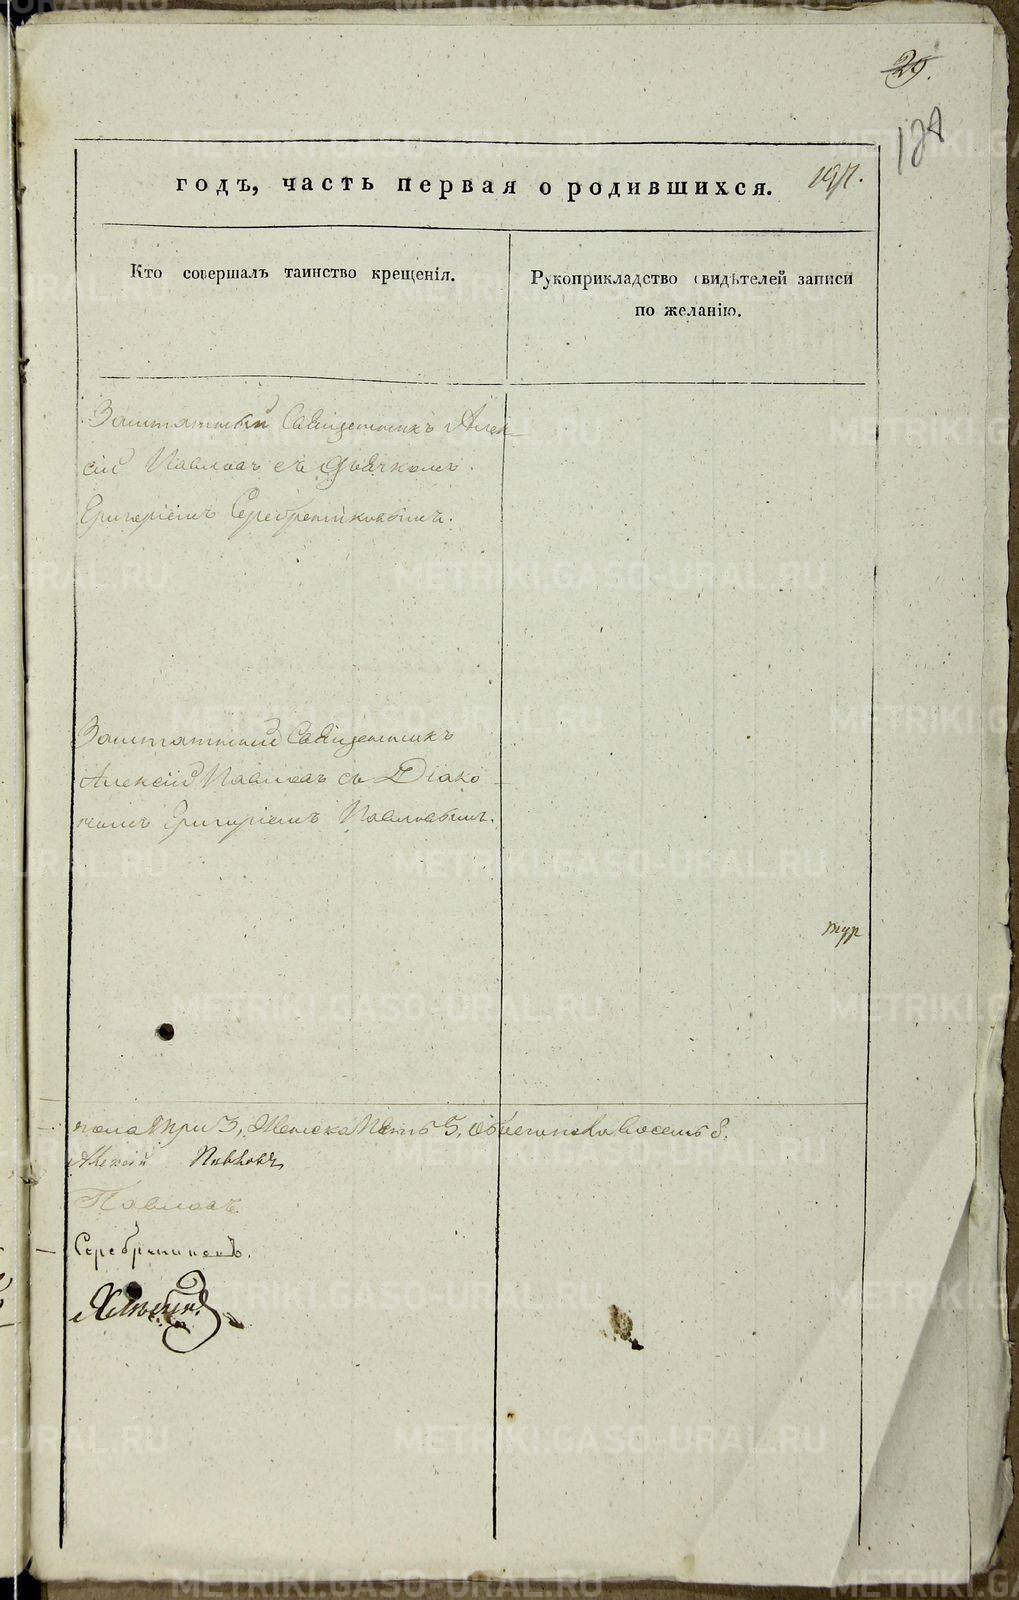 29.
128
годъ, часть первая о родившихся.
Кто совершалъ таинство крещенія.
Рукоприкладство свидѣтелей записи
по желанію.
Заштатный Священникъ Алек
сій Павловъ съ дьячкомъ
Григоріемъ Серебрениковымъ.
Заштатный Священникъ
Алексій Павловъ съ Діако
номъ Григоріемъ Павловымъ.
пола три 3, Женска Пять 5, обоего пола восемь 8.
Алексій Павловъ
Павловъ.
Серебрениковъ.
METRIKI.GASO-URAL.RU